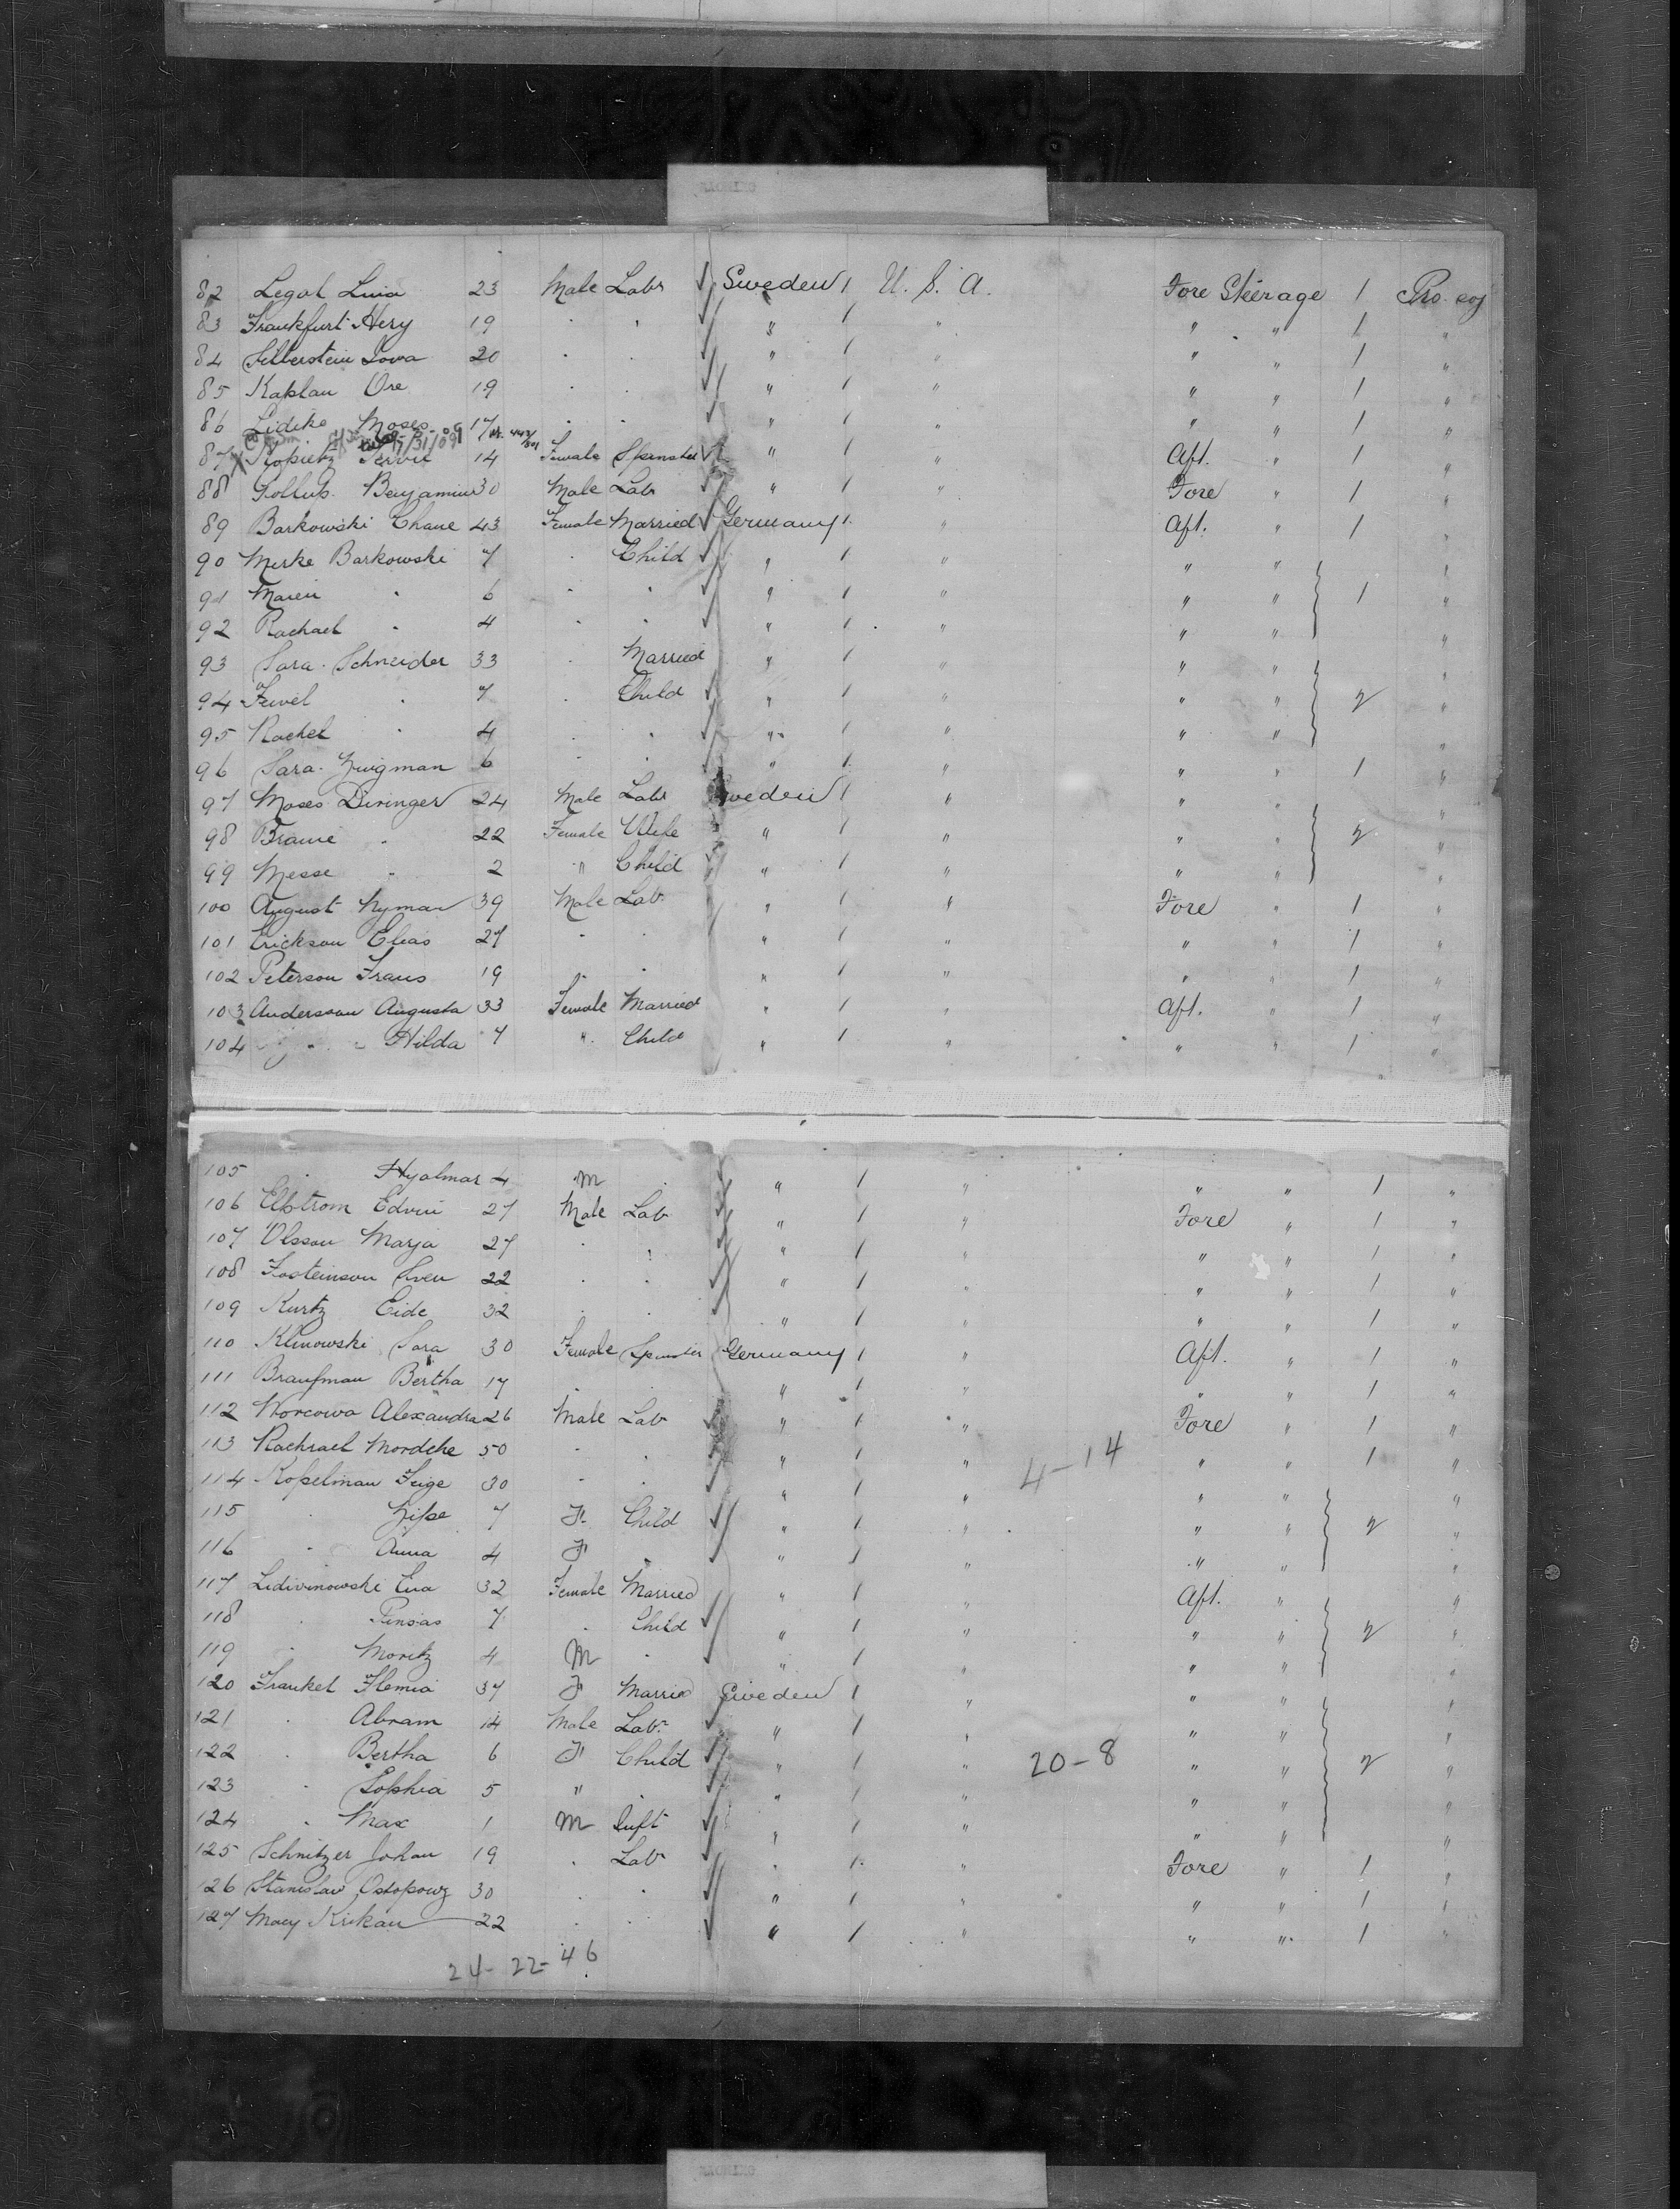 82 Legal Lina 23 Male Labr Sweden 1 U. S. A. Fore Steerage 1 Pro soj
83 Frankfurt Hery 19 " " " 1 " " " 1 "
84 Silberstein Sowa 20 " " " 1 " " " 1 "
85 Kaplan Ore 19 " " " 1 " " " 1 "
86 Lidike Moses 17 " " " 1 " " " 1 "
87 Kopietz 14 Female Spinster " 1 " Aft. " 1 "
88 Gollub Benjamin 30 Male Lab " 1 " Fore " 1 "
89 Barkowski Chane 43 Female Married Germany 1 " Aft. " 1 "
90 Merke Barkowski 7 " Child " 1 " " " "
91 Maren " 6 " " " 1 " " " 1 "
92 Rachael " 4 " " " 1 " " " "
93 Sara Schneider 33 " Married " 1 " " " "
94 Fewel " 7 " Child " 1 " " " 2 "
95 Rachel " 4 " " " 1 " " " "
96 Sara Zwigman 6 " " " 1 " " " 1 "
97 Moses Diringer 24 Male Labr Sweden 1 " " " "
98 Braine " 22 Female Wife " 1 " " " 2 "
99 Messe " 2 " Child " 1 " " " "
100 August Nyman 39 Male Lab " 1 " Fore " 1 "
101 Erickson Elias 27 " " " 1 " " " 1 "
102 Peterson Frans 19 " " " 1 " " " 1 "
103 Andersson Augusta 33 Female Married " 1 " Aft. " 1 "
104 " Hilda 7 " Child " 1 " " " 1 "
105 " Hjalmar 4 M " " 1 " " " 1 "
106 Elbtrom Edvin 27 Male Lab " 1 " Fore " 1 "
107 Olsson Marja 27 " " " 1 " " " 1 "
108 Fosteinson Sven 22 " " " 1 " " " 1 "
109 Kurtz Eide 32 " " " 1 " " " 1 "
110 Klinowski Sara 30 Female Spinster Germany 1 " Aft. " 1 "
111 Braufman Bertha 17 " " " 1 " " " 1 "
112 Worcowa Alexandra 26 Male Lab " 1 " Fore " 1 "
113 Rachrael Mordche 50 " " " 1 " 4-14 " " 1 "
114 Kopelman Feige 30 " " " 1 " " " "
115 " Zipe 7 F. Child " 1 " " " 2 "
116 " Anna 4 F " " 1 " " " "
117 Lidivinowski Eva 32 Female Married " 1 " Aft. " "
118 " Pinsas 7 " Child " 1 " " " 2 "
119 " Moritz 4 M " " 1 " " " "
120 Frankel Flemia 37 F Married Sweden 1 " " " "
121 " Abram 14 Male Lab. " 1 " " " "
122 " Bertha 6 F Child " 1 " 20-8 " " 2 "
123 " Sophia 5 " " " 1 " " " "
124 " Max 1 M Inft " 1 " " " "
125 Schnitzer Johan 19 " Lab " 1 " Fore " 1 "
126 Stanislaw Ostopowz 30 " " " 1 " " " 1 "
127 Macy Krikau 22 " " " 1 " " " 1 "
24-22-46